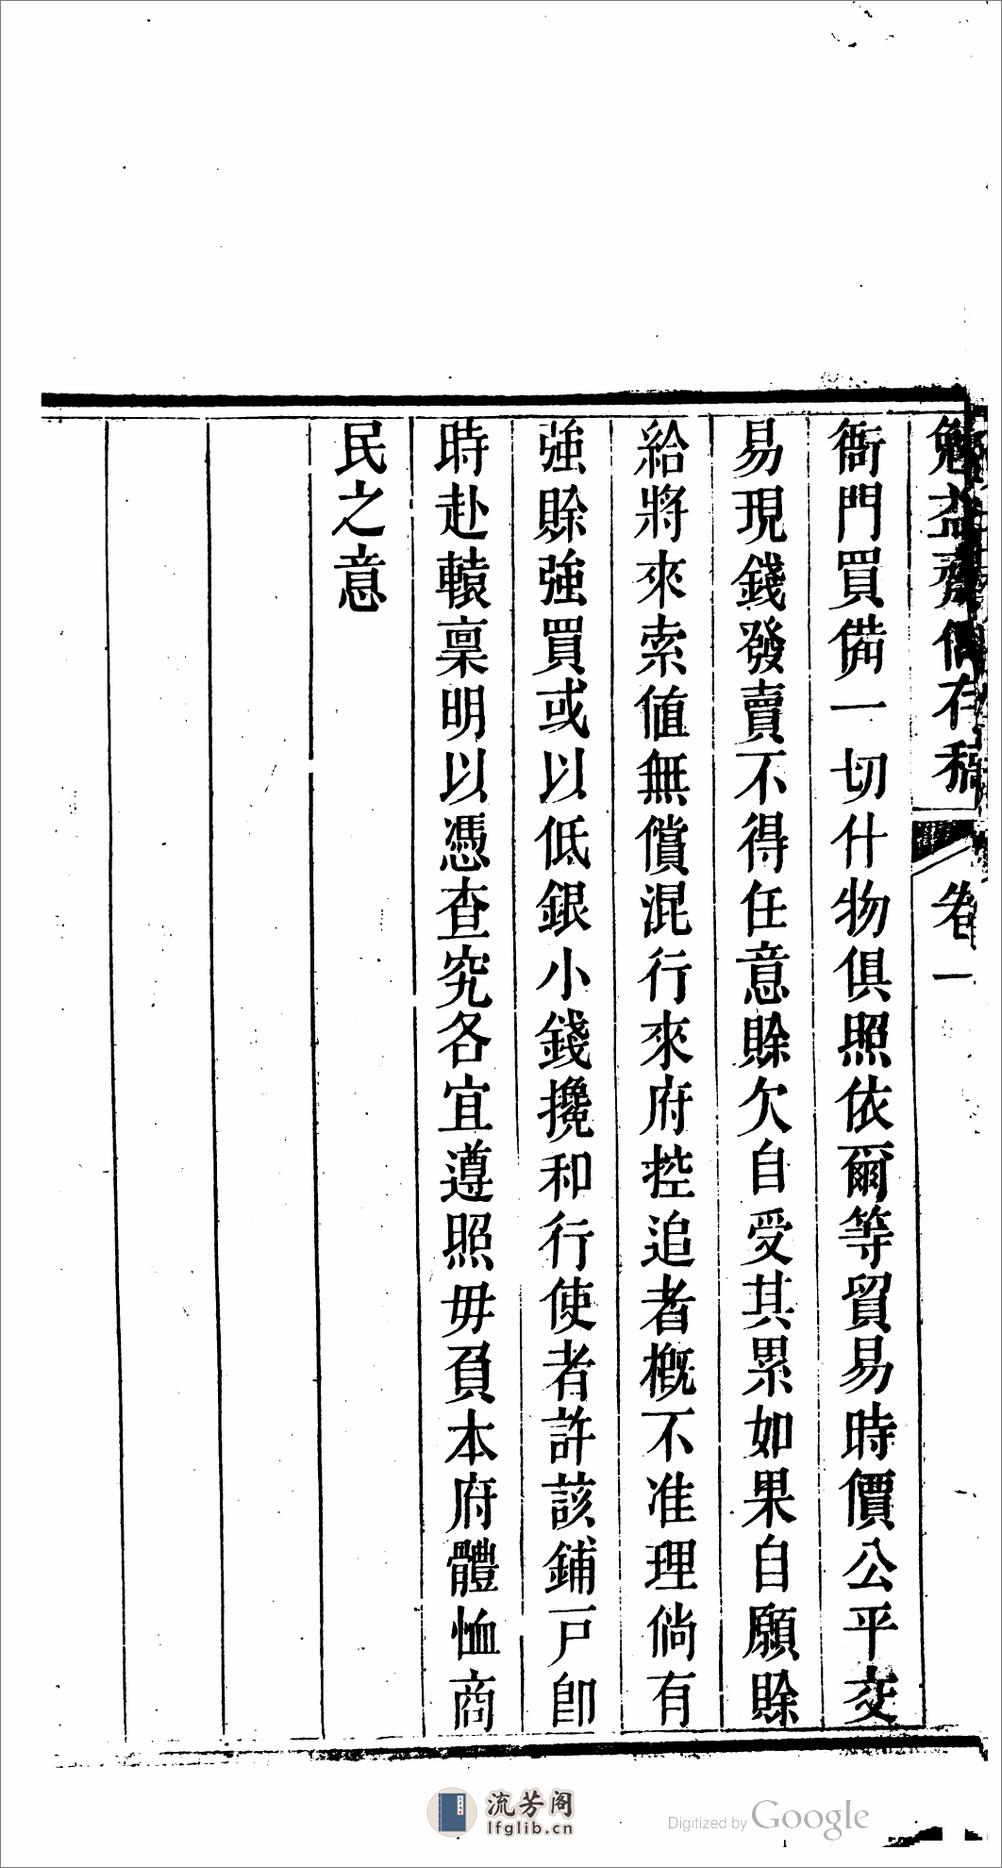 勉益齋偶存稿 卷一
衙門買備一切什物俱照依爾等貿易時價公平交
易現錢發賣不得任意賒欠自受其累如果自願賒
給將來索値無償混行來府控追者槪不准理倘有
強賒強買或以低銀小錢攙和行使者許該鋪戸卽
時赴轅稟明以憑查究各宜遵照毋負本府體恤商
民之意
流芳阁
lfglib.cn
Digitized by Google